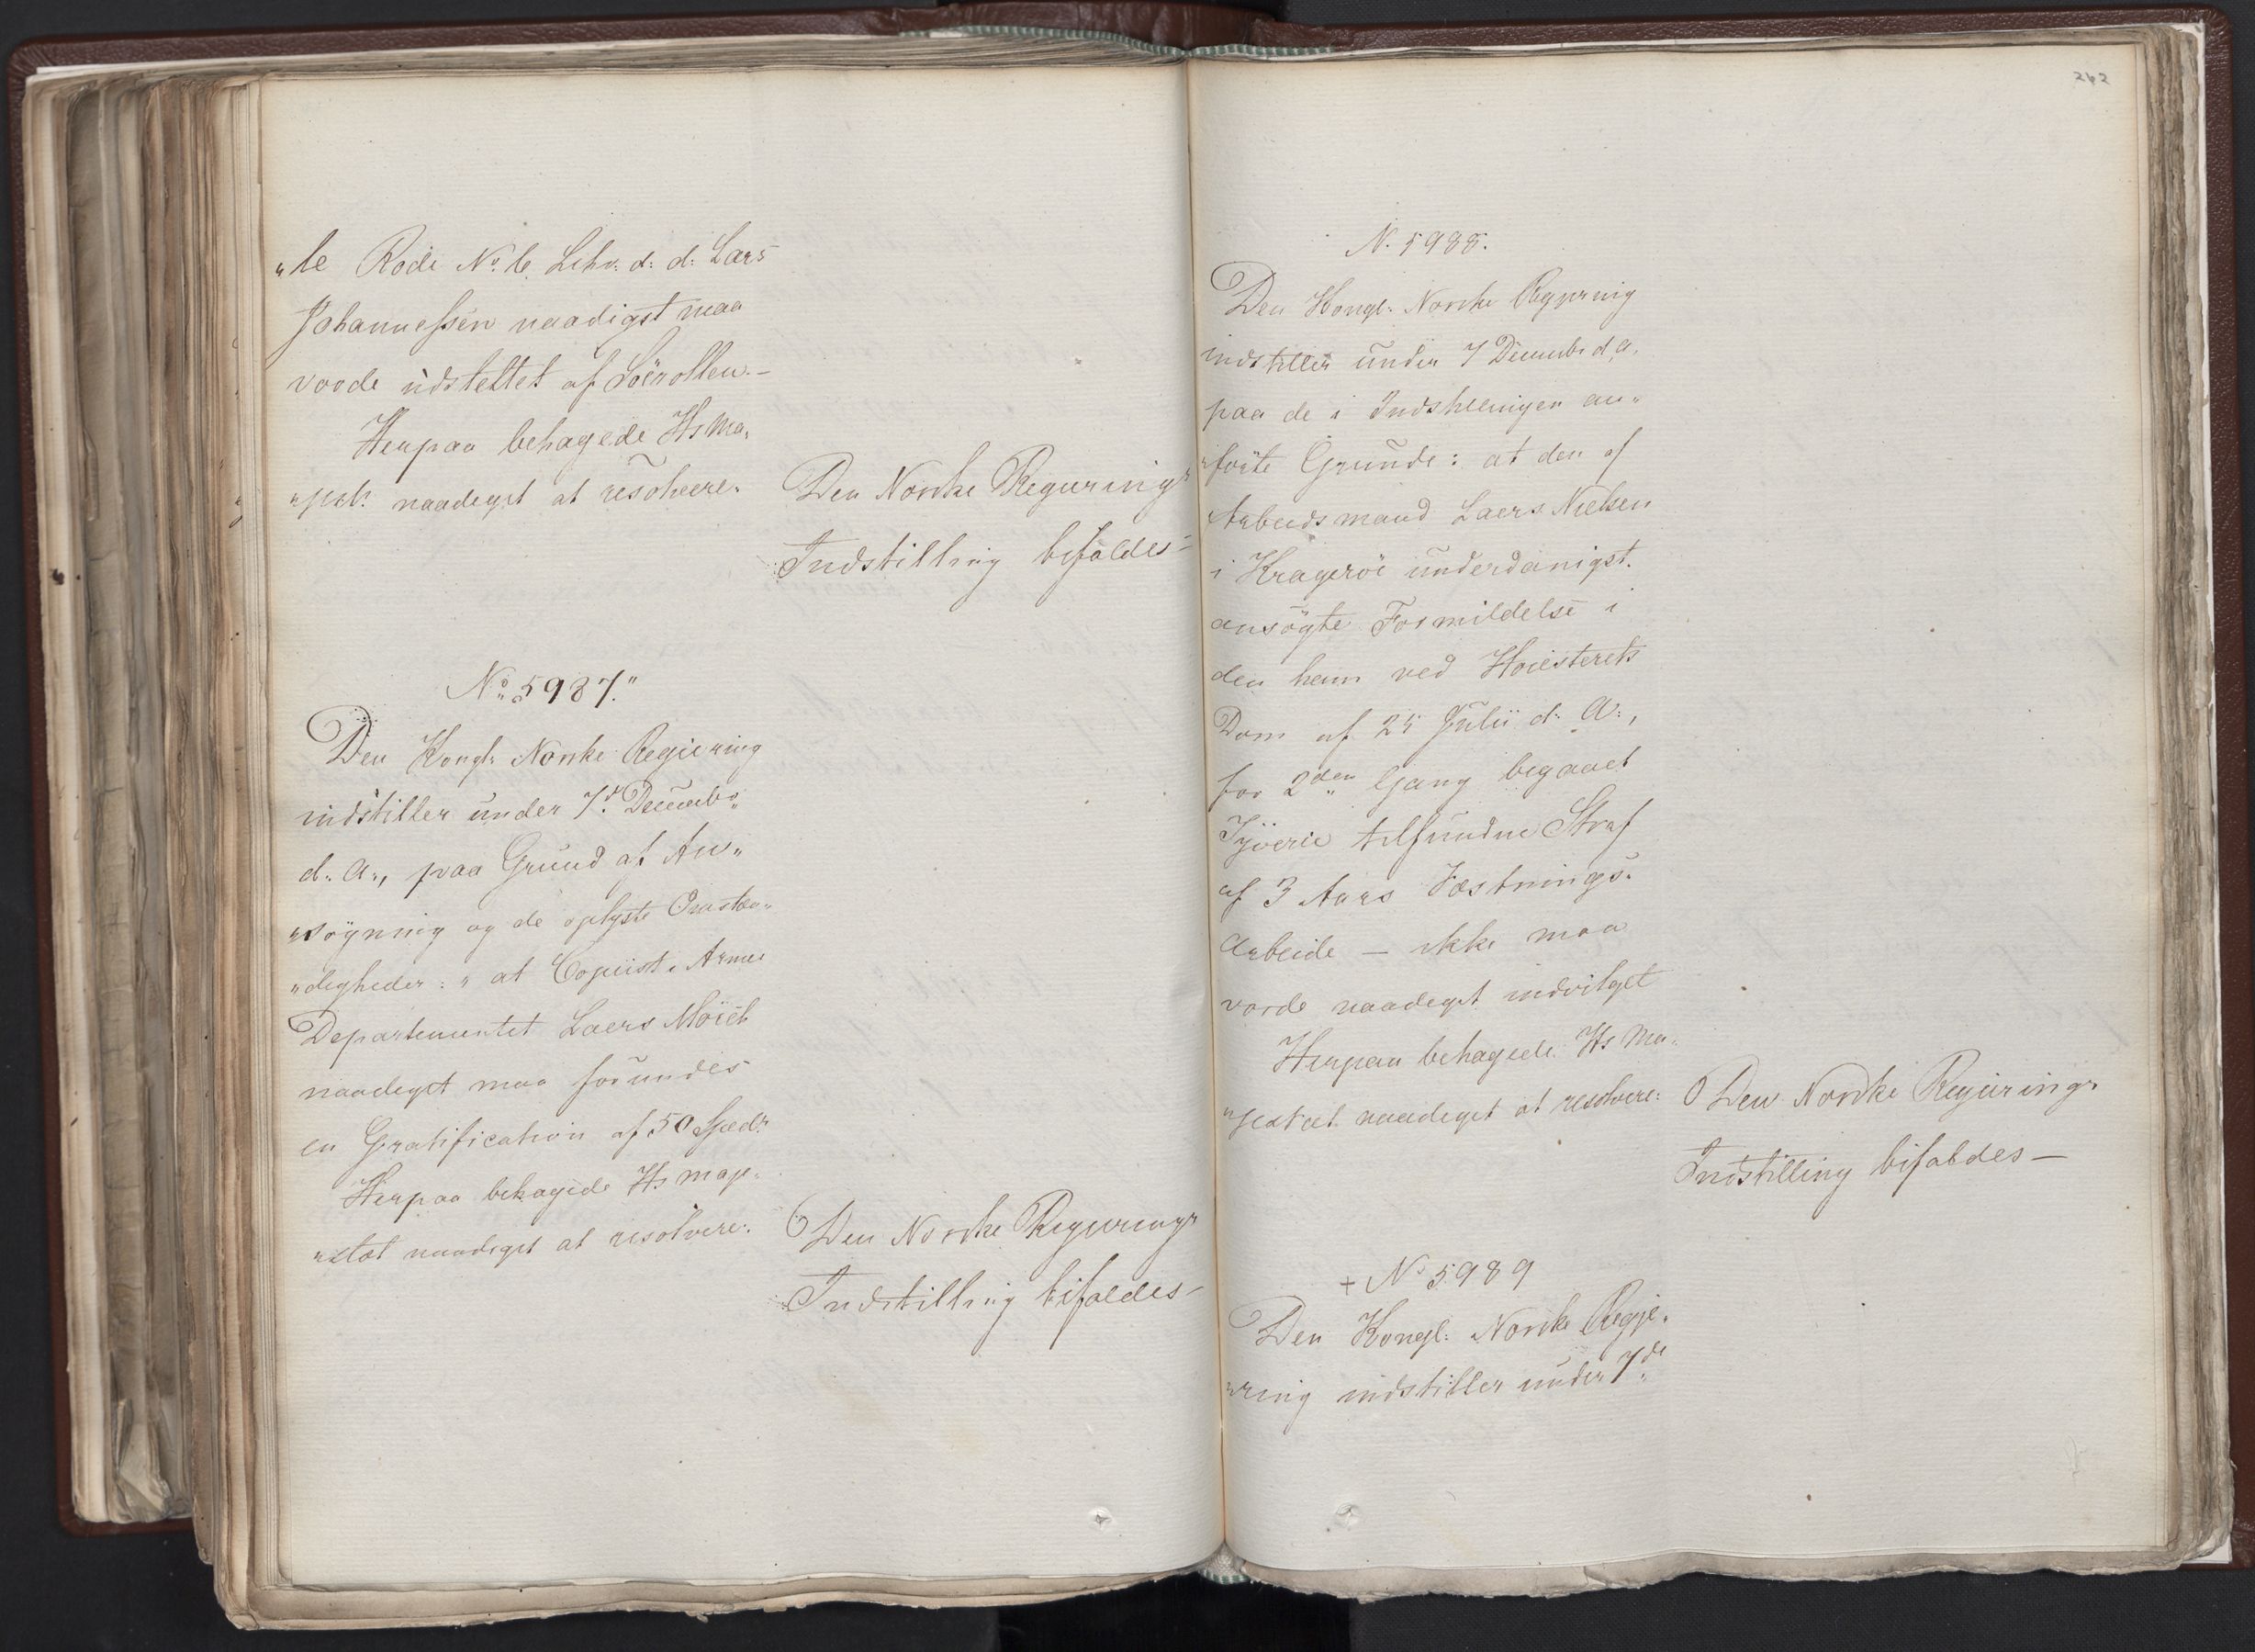 „le Rode No. 6. Lit: d: d: Lars
Johannessen naadigst maa
vorde udslettet af Söerollen. —
Herpaa behagede Hs Ma„
„jest: naadigst at resolvere.
Den Norske Regierings
Indstilling bifaldes —
No. 5987."
Den Kongl: Norske Regiering
indstiller under 7d. Decembr
d: A:, paa Grund af An„
„sögning og de oplyste Omstæn„
„digheder: „ at Copiist i Armee
Departementet Laers Moich
naadigst maa forundes
en Gratification af 50 Specdr
Herpaa behagede Hs maje„
„stæt naadigst at resolvere:
Den Norske Regierings
Indstilling bifaldes —
242
N. 5988.
Den Kongl: Norske Regjering
indstiller under 7 Decembr d. A.
paa de i Indstillingen an„
„förte Grunde: at den af
Arbeidsmand Laers Nielsen
i Krageröe underdanigst
ansögte Formildelse i
den ham ved Höiesterets
Dom af 25 Julii d: A:,
for 2den Gang begaaet
Tyverie tilfundne Straf
af 3 Aars Fæstnings„
Arbeide — ikke maa
vorde naadigst indvilget
Herpaa behagede Hs Ma„
„jestæt naadigst at resolvere:
Den Norske Regierings
Indstilling bifaldes —
+ No 5989
Den Kongel: Norske Regje„
„ring indstiller under 7de